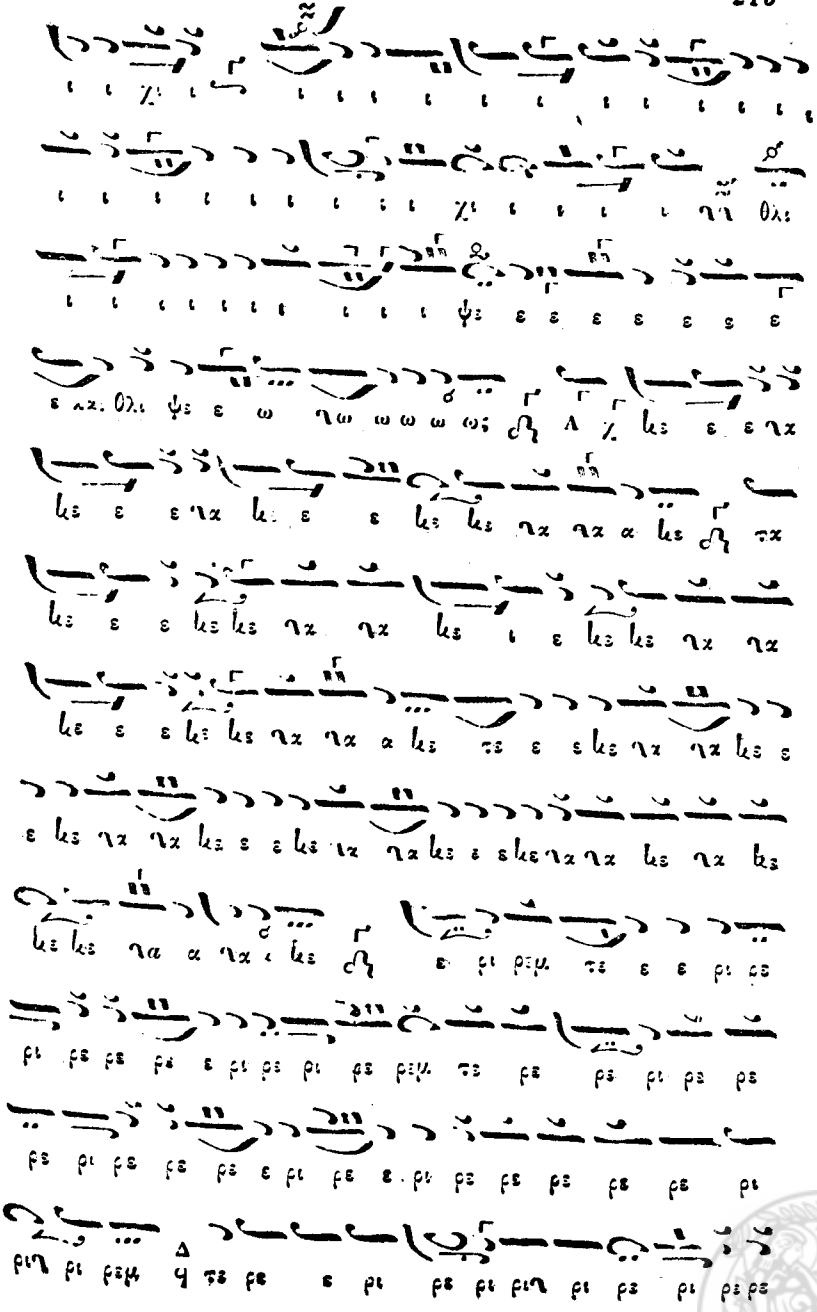 ι ι χι ι ι ι ι ι ι ι ι ι ι ι ι ι
ι ι ι ι ι ι ι ι ι χι ι ι ι ι θλι
ι ι ι ι ι ι ι ι ι ι ι ψε ε ε ε ε ε ε ε
ε και θλι ψε ε ω νω ω ω ω ως Λ χ κε ε ε να
κε ε ε να κε ε ε κε κε να να α κε τα
κε ε ε κε κε να να κε ι ε κε κε να να
κε ε ε κε κε να να α κε τε ε ε κε να να κε ε
ε κε να να κε ε ε κε να να κε ε ε κε να να κε να κε
κε κε να α να ι κε ε ρι ρεμ τε ε ε ρι ρε
ρι ρε ρε ρε ε ρι ρε ρι ρε ρεμ τε ρε ρε ρι ρε ρε
ρε ρι ρε ρε ρε ε ρι ρε ε ρι ρε ρε ρε ρε ρε ρι
ριν ρι ρεμ Δ τε ρε ε ρι ρε ρι ριν ρι ρε ρι ρε ρε